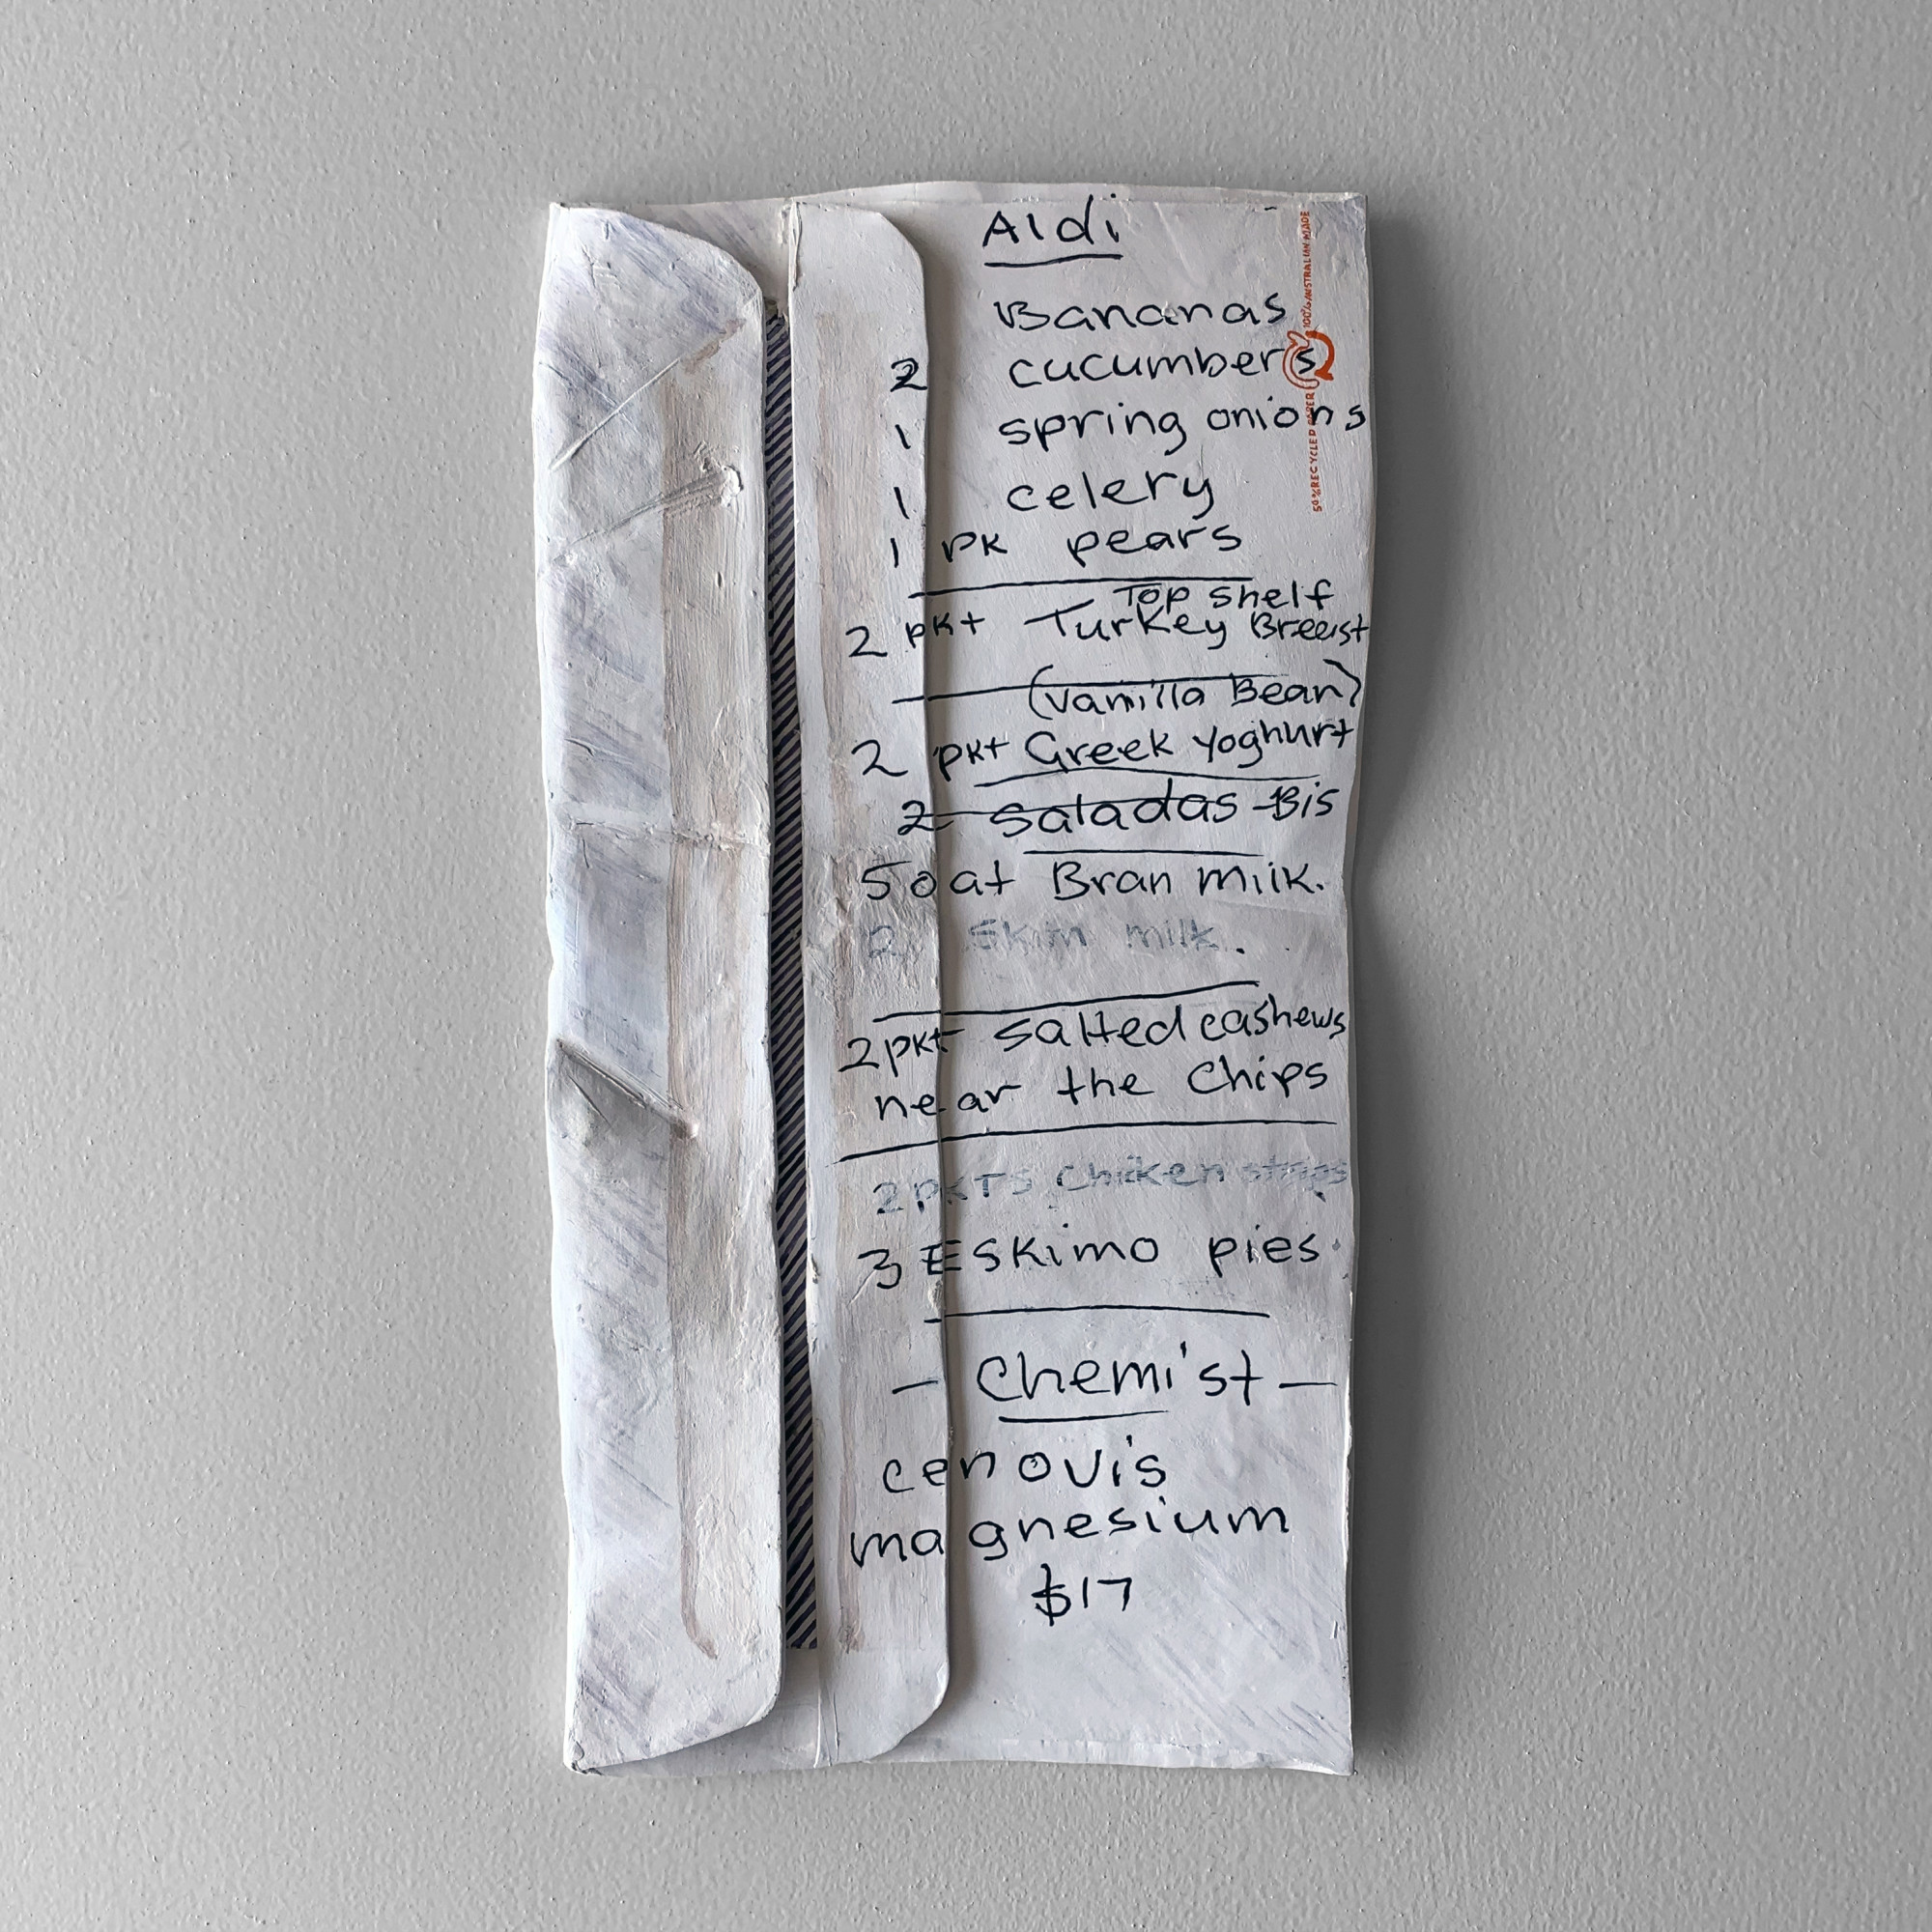 Aldi
Bananas
2 cucumbers
1 spring onions
1 celery
1 pk pears
Top shelf
2 pkt Turkey Breast
(Vanilla Bean)
2 pkt Greek Yoghurt
2 Saladas Bis
5 oat Bran milk.
2 Skim milk.
2 pkt salted cashews
near the Chips
2 pkTS Chicken strips
3 Eskimo pies
- Chemist -
cenovis
magnesium
$17
50% RECYCLED PAPER 100% AUSTRALIAN MADE